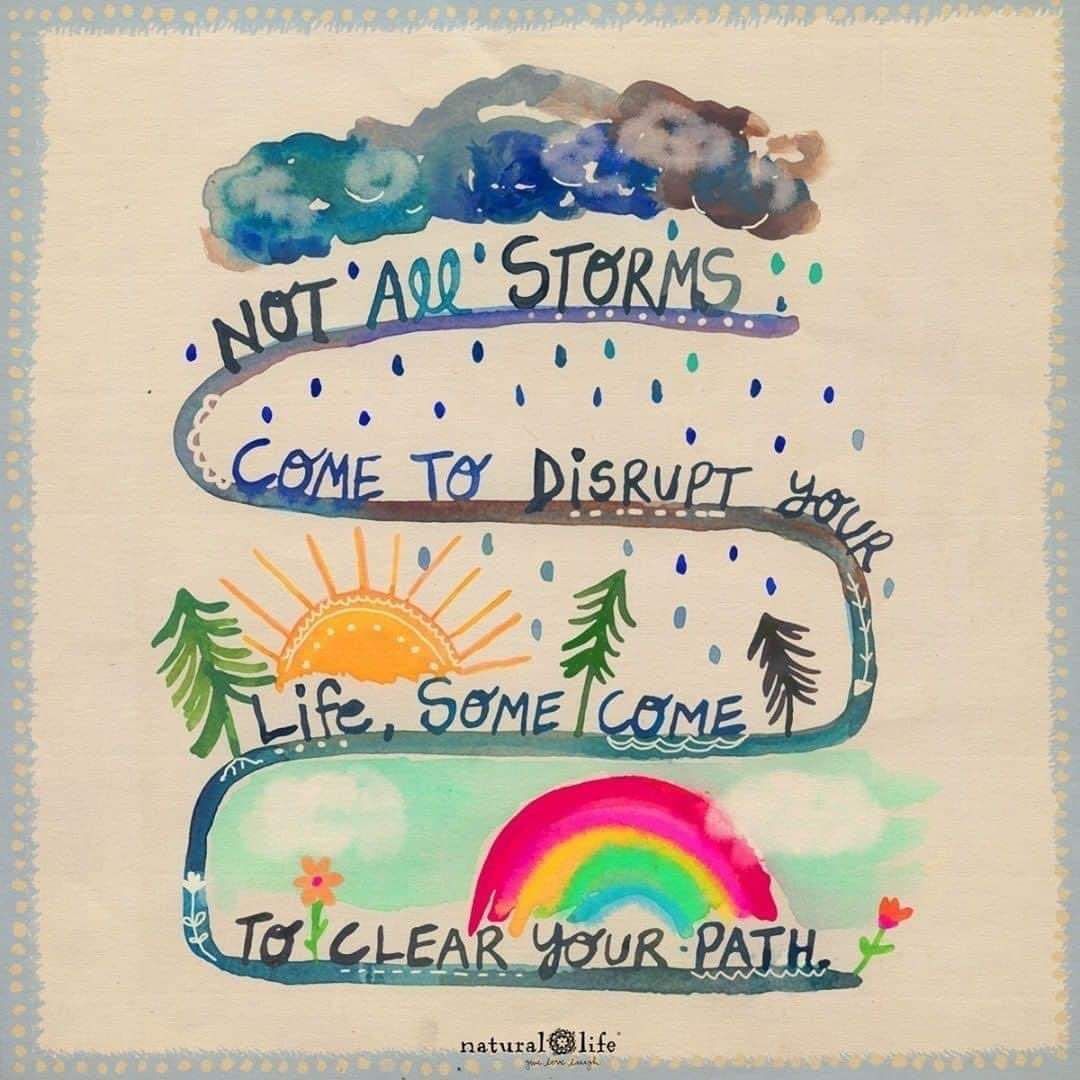 NOT All STORMS
COME TO DISRUPT YOUR
Life, SOME COME
TO CLEAR YOUR PATH.
natural life
give love laugh